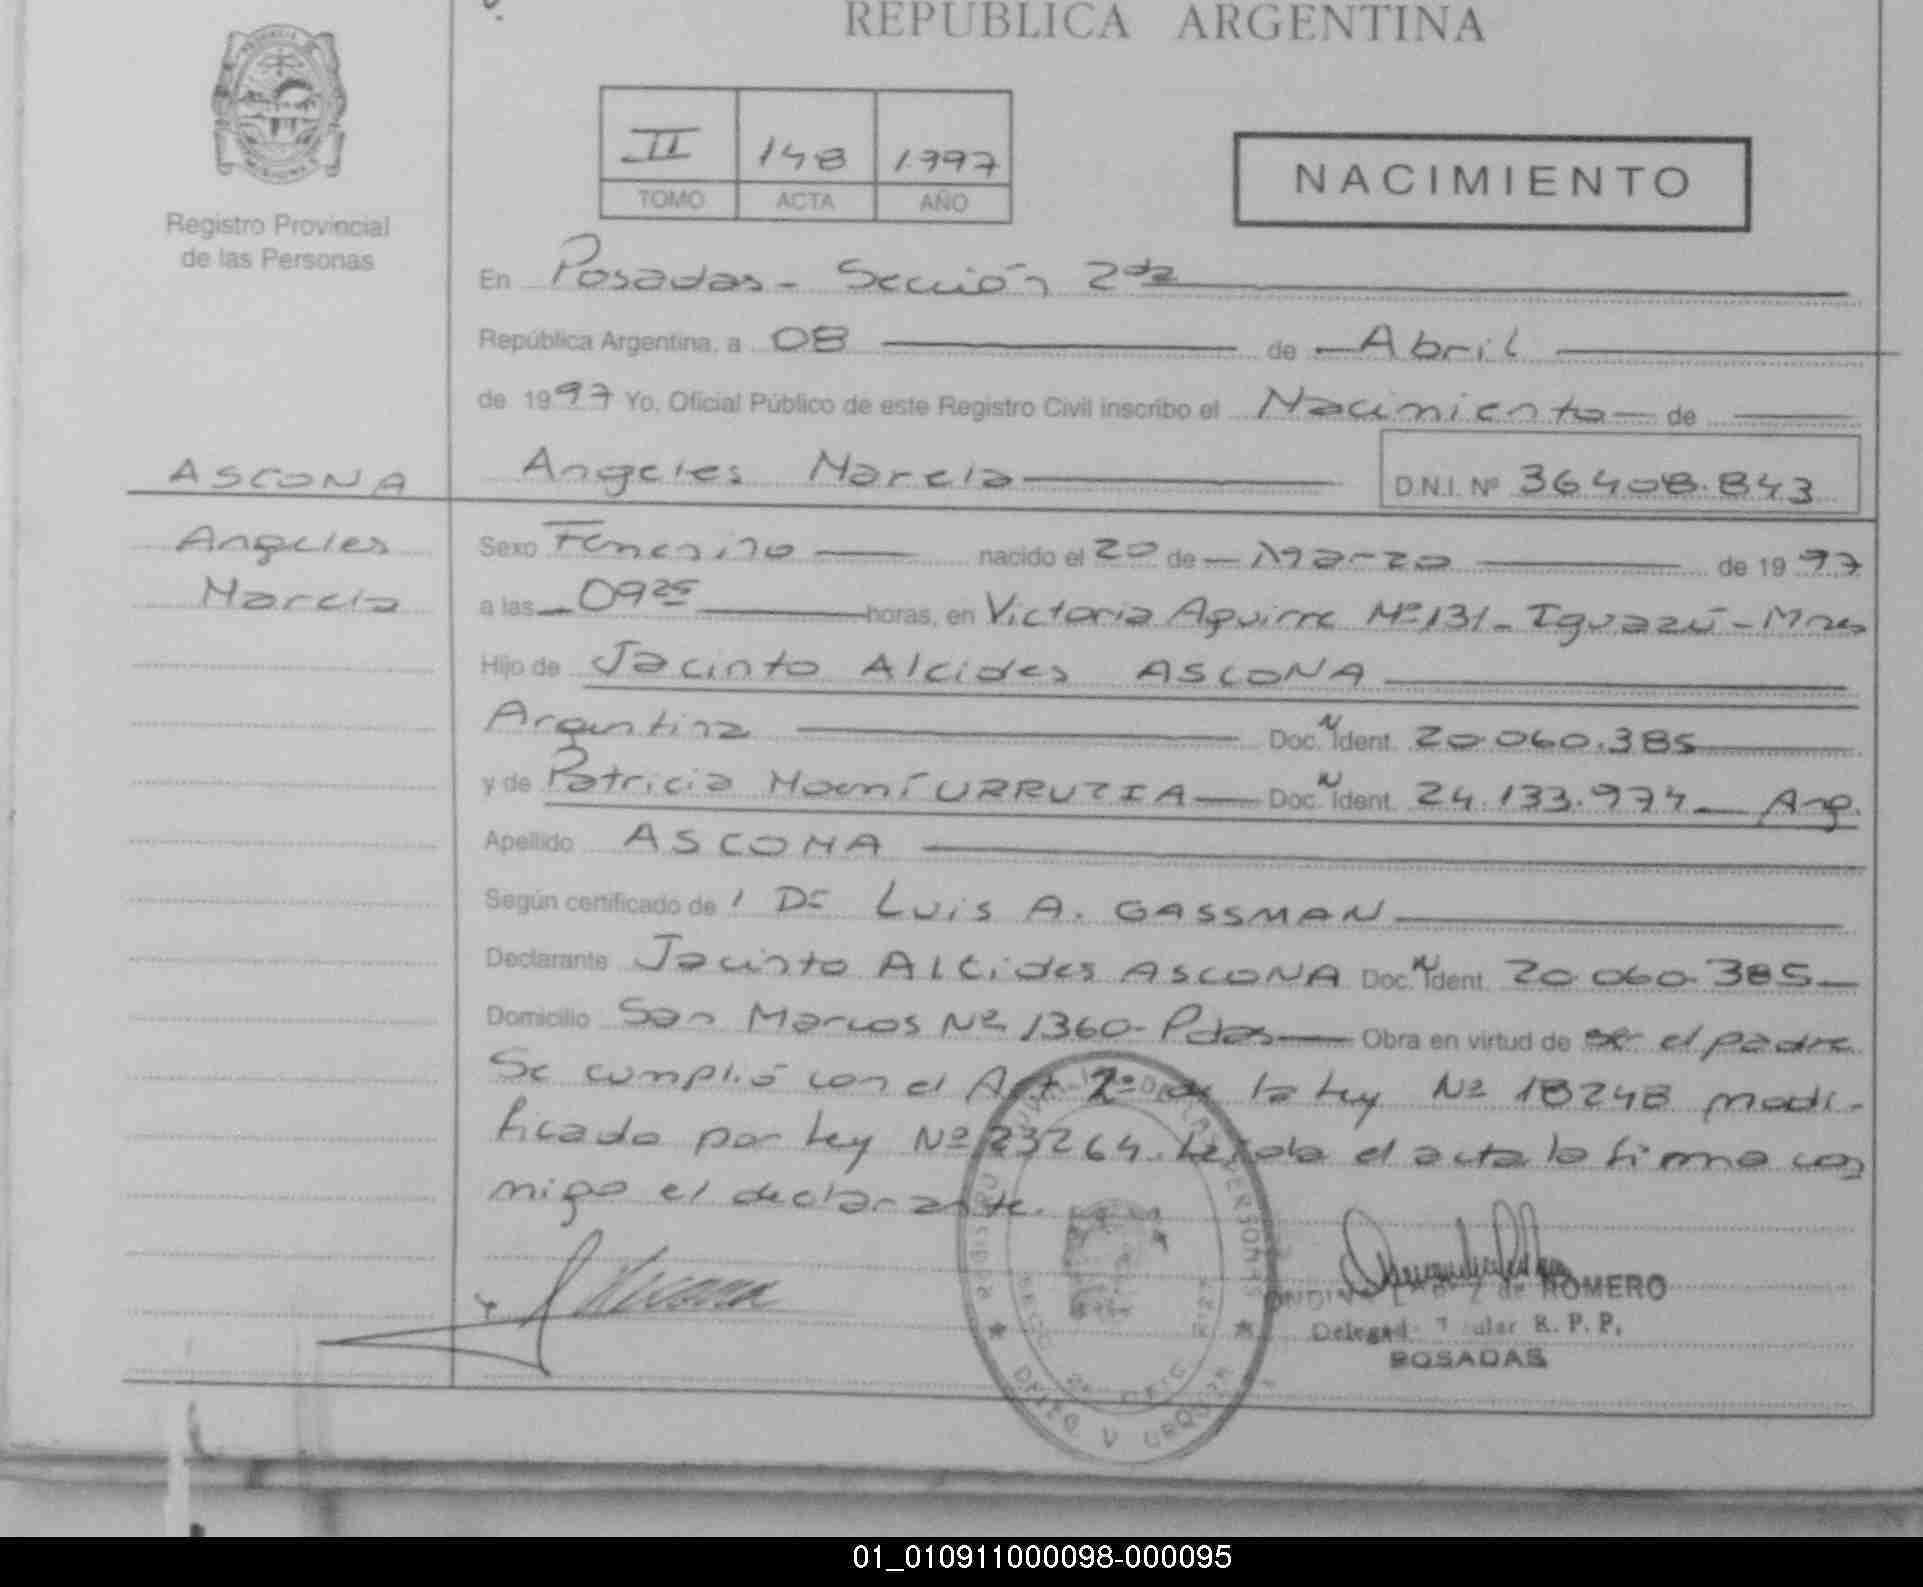 REPUBLICA ARGENTINA
II 148 1997
TOMO ACTA AÑO
NACIMIENTO
Registro Provincial
de las Personas
En Posadas - Sección 2da
República Argentina, a 08 de Abril
de 1997 Yo, Oficial Público de este Registro Civil inscribo el Nacimiento de
ASCONA Angeles Marcia D.N.I. Nº 36408.843
Angeles
Marcia
Sexo Femenino nacido el 20 de Marzo de 1997
a las 09 25 horas, en Victoria Aguirre Nº 131 - Iguazú - Mnes
Hijo de Jacinto Alcides ASCONA
Argentina Doc. N Ident. 20.060.385
y de Patricia Noemí URRUTIA Doc. N Ident. 24.133.974 Arg.
Apellido ASCONA
Según certificado de Dr Luis A. GASSMAN
Declarante Jacinto Alcides ASCONA Doc. N Ident. 20.060.385
Domicilio San Marcos Nº 1360 - Pdas Obra en virtud de ser el padre
Se cumplió con el Art 2º de la Ley Nº 18248 modi-
ficado por Ley Nº 23264. Leída el acta la firma con
migo el declarante.
de ROMERO
Delegad Titular R. P. P.
POSADAS
01_010911000098-000095